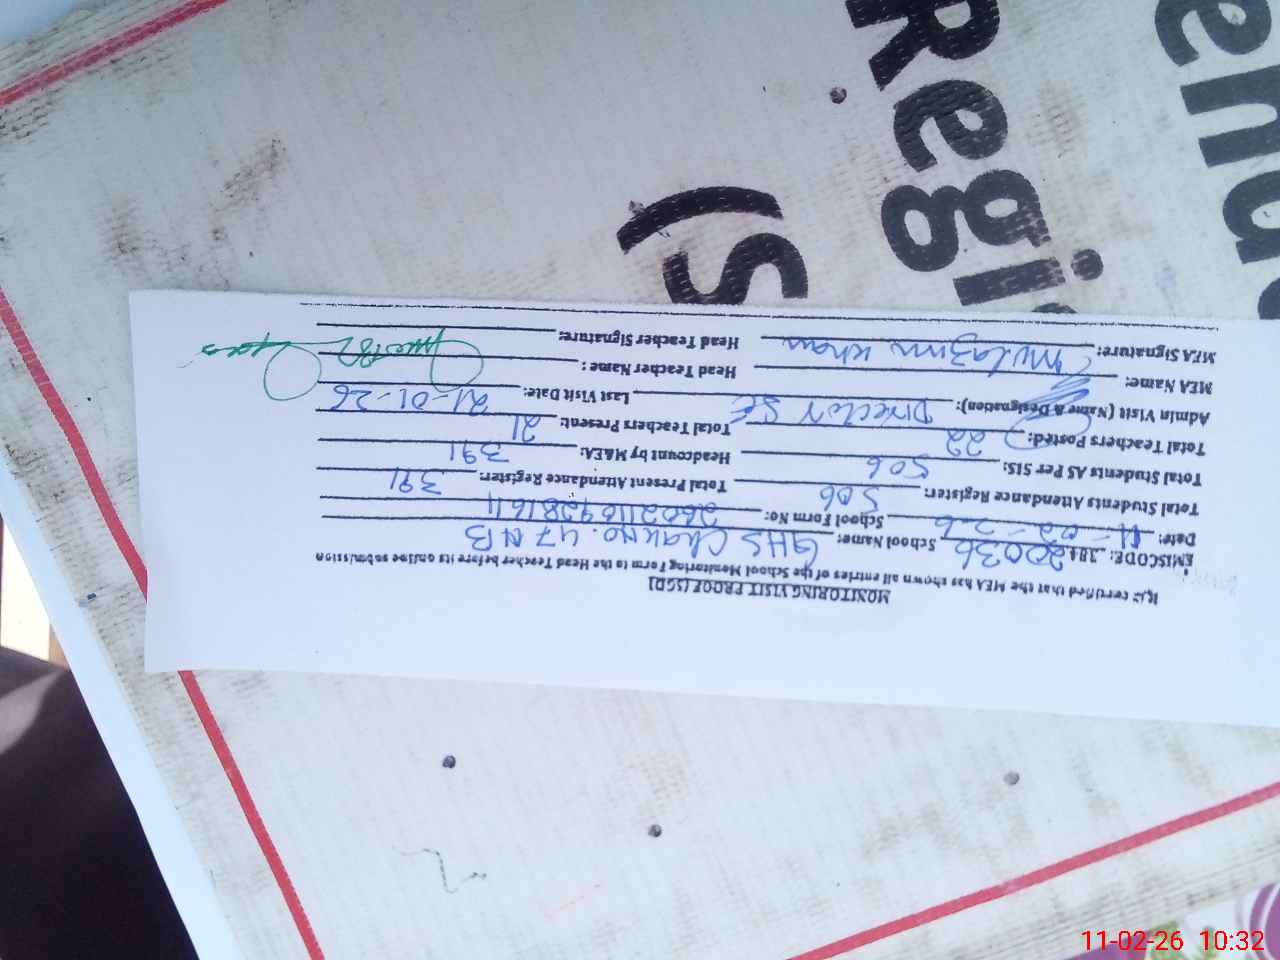 Regi
(S
MONITORING VISIT PROOF (SGD)
It is certified that the MEA has shown all entries of the School Monitoring Form to the Head Teacher before its online submission
EMISCODE: 384 20036 School Name: GHS Chak No. 47 NB
Date: 11-02-26 School Form No:
Total Students Attendance Register: 506 Total Present Attendance Register: 391
Total Students AS Per SIS: 506 Headcount by M&EA: 391
Total Teachers Posted: 22 Total Teachers Present: 21
Admin Visit (Name & Designation): Director SE Last Visit Date: 21-01-26
MEA Name: Head Teacher Name :
MEA Signature: Mulazim Khan Head Teacher Signature:
11-02-26 10:32